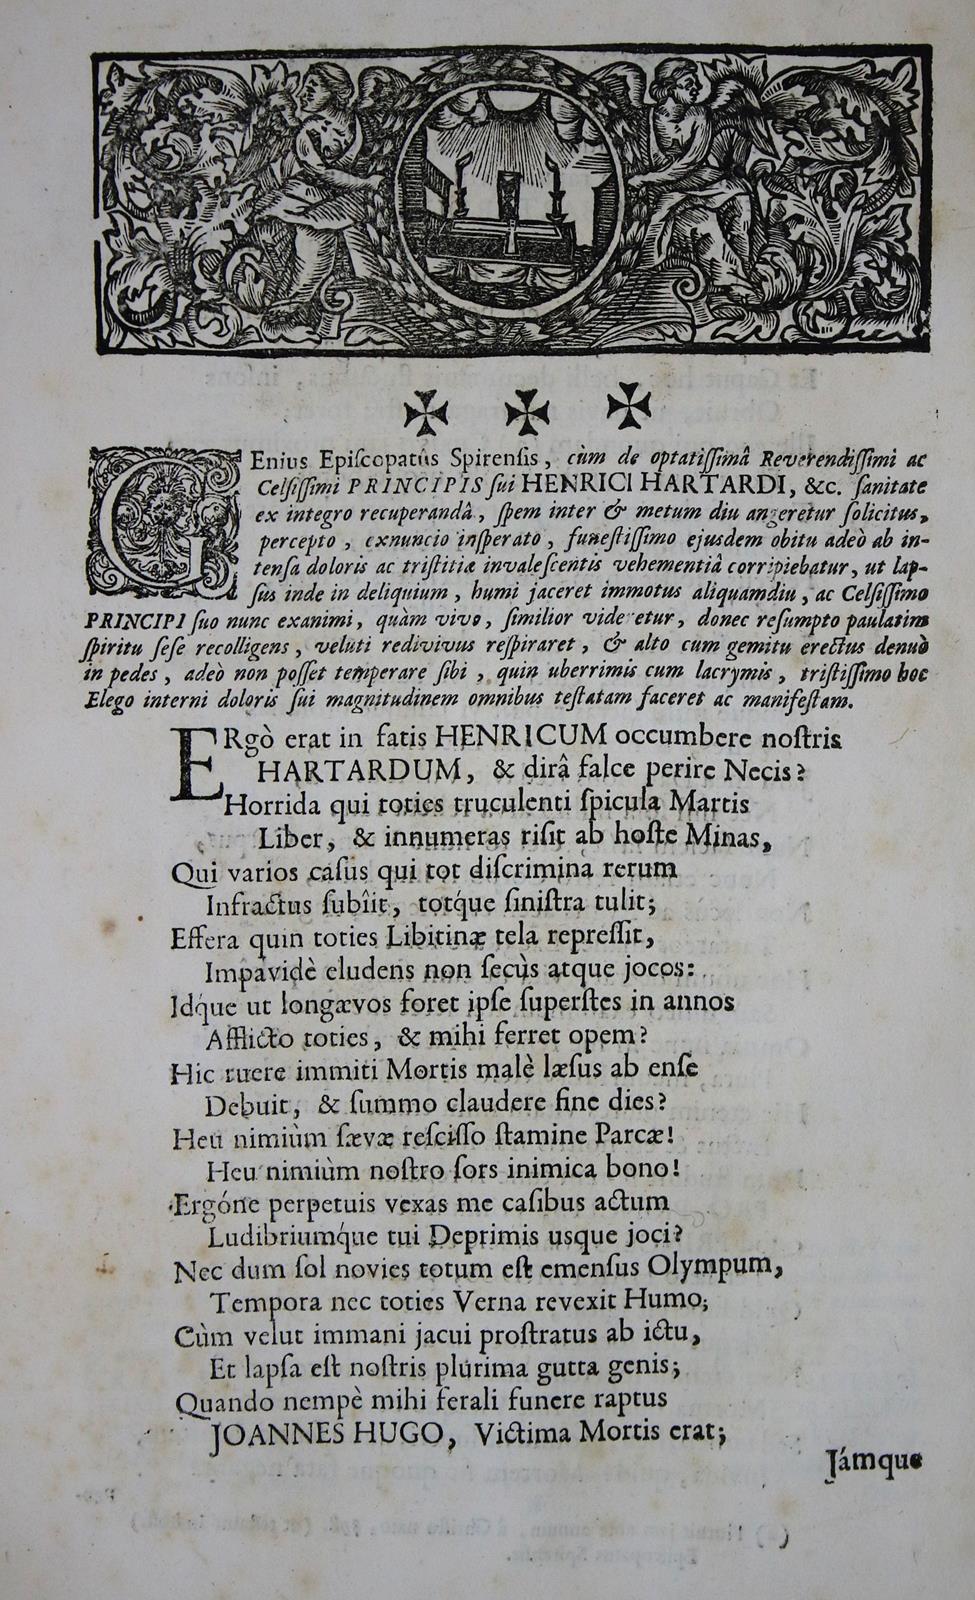 GEnius Episcopatûs Spirensis, cùm de optatissimâ Reverendissimi ac
Celsissimi PRINCIPIS sui HENRICI HARTARDI, &c. sanitate
ex integro recuperandâ, spem inter & metum diu angeretur solicitus,
percepto, exnuncio insperato, funestissimo ejusdem obitu adeò ab in-
tensa doloris ac tristitiæ invalescentis vehementiâ corripiebatur, ut lap-
sus inde in deliquium, humi jaceret immotus aliquamdiu, ac Celsissimo
PRINCIPI suo nunc exanimi, quàm vivo, similior videretur, donec resumpto paulatim
spiritu sese recolligens, veluti redivivus respiraret, & alto cum gemitu erectus denuò
in pedes, adeò non posset temperare sibi, quin uberrimis cum lacrymis, tristissimo hoc
Elego interni doloris sui magnitudinem omnibus testatam faceret ac manifestam.
ERgò erat in fatis HENRICUM occumbere nostris
HARTARDUM, & dirâ falce perire Necis?
Horrida qui toties truculenti spicula Martis
Liber, & innumeras risit ab hoste Minas,
Qui varios casus qui tot discrimina rerum
Infractus subîit, totq́ue sinistra tulit;
Effera quin toties Libitinæ tela repressit,
Impavidè eludens non secùs atque jocos:
Idq́ue ut longævos foret ipse superstes in annos
Afflicto toties, & mihi ferret opem?
Hic ruere immiti Mortis malè læsus ab ense
Debuit, & summo claudere fine dies?
Heu nimiùm sævæ rescisso stamine Parcæ!
Heu nimiùm nostro sors inimica bono!
Ergóne perpetuis vexas me casibus actum
Ludibriumq́ue tui Deprimis usque joci?
Nec dum sol novies totum est emensus Olympum,
Tempora nec toties Verna revexit Humo;
Cùm velut immani jacui prostratus ab ictu,
Et lapsa est nostris plurima gutta genis;
Quando nempè mihi ferali funere raptus
JOANNES HUGO, Victima Mortis erat;
Jámque